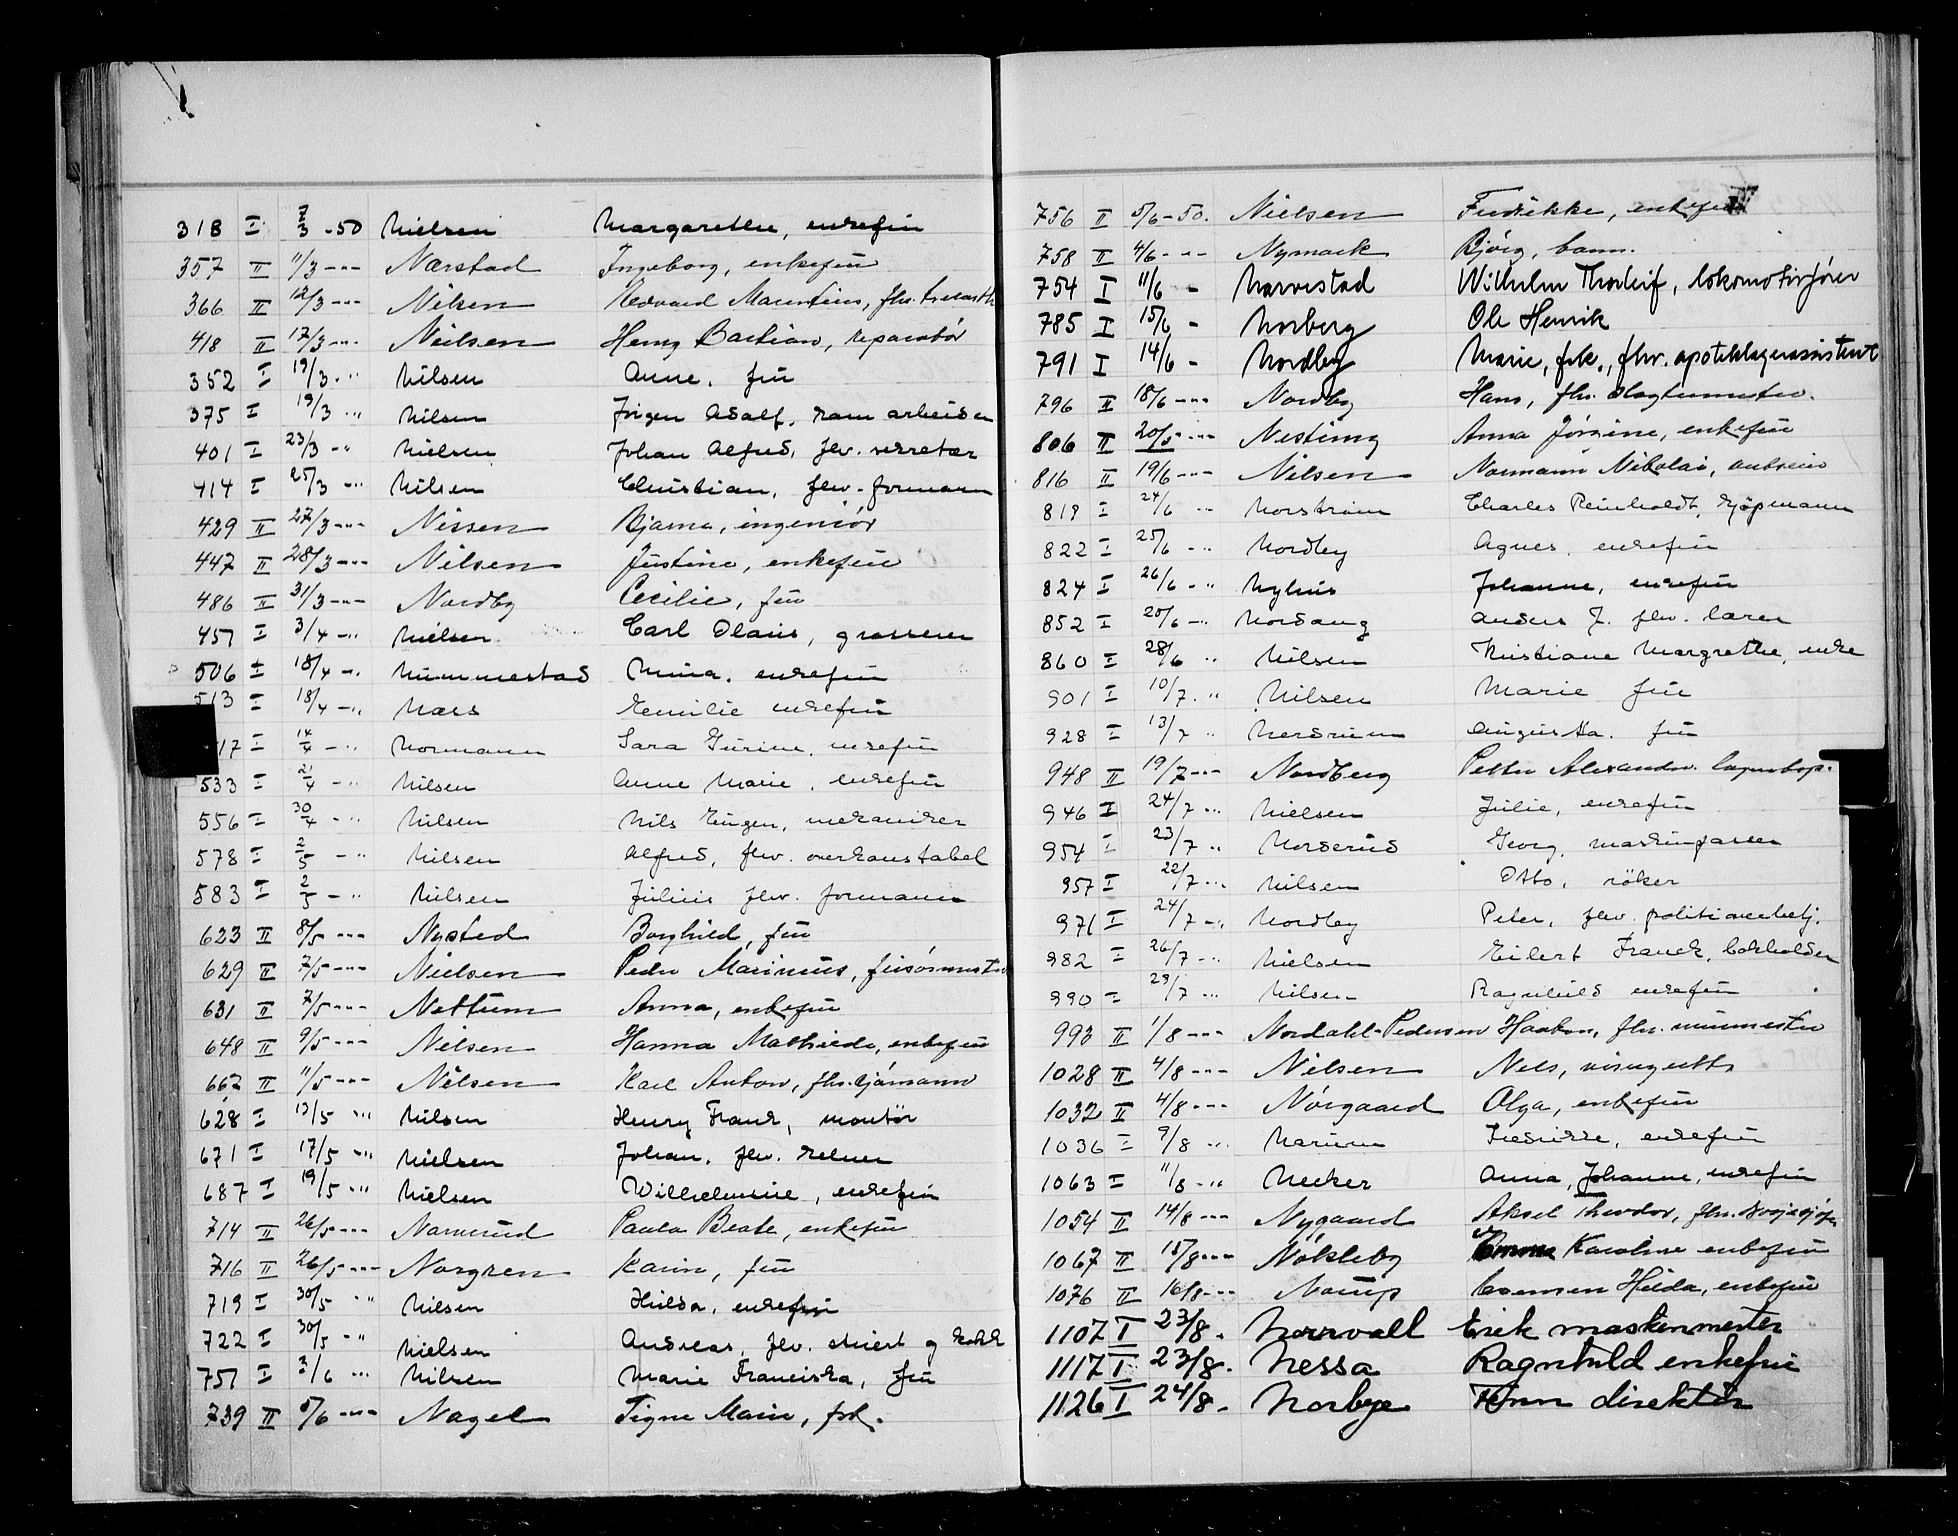 318 I 7/3 -50 Nielsen Margarethe, enkefru
357 II 11/3 -"- Narstad Ingeborg, enkefru
366 II 12/3 -"- Nilsen Edvard Mauritius, fhv.
418 II 17/3 -"- Nielsen Henry Bastian, reparatör
352 I 19/3 -"- Nilsen Anne, fru
375 I 19/3 -"- Nilsen Jörgen Adolf, kom arbeider
401 I 23/3 -"- Nielsen Johan Alfred, fhv. sekretær
414 I 25/3 -"- Nilsen Christian, fhv. formann
429 II 27/3 -"- Nissen Bjarne, ingeniör
447 II 28/3 -"- Nilsen Justine, enkefru
486 II 31/3 -"- Nordby Cecilie, fru
457 I 3/4 -"- Nielsen Carl Olaus, grosserer
506 I 18/4 -"- Nummestad Mina, enkefru
513 I 18/4 -"- Næss Emilie enkefru
17 I 14/4 -"- Normann Sara Gurine, enkefru
533 I 21/4 -"- Nilsen Anne Marie, enkefru
556 I 30/4 -"- Nilsen Nils Eugen, mekaniker
578 I 2/5 -"- Nilsen Alfred, fhv. overkonstabel
583 I 2/5 -"- Nilsen Julius fhv. formann
623 II 8/5 -"- Nysted Borghild, fru
629 II 7/5 -"- Nielsen Peder Marinius, frisörmester
631 II 7/5 -"- Nettum Anna, enkefru
648 II 9/5 -"- Nilsen Hanna Mathilde, enkefru
662 II 11/5 -"- Nilsen Karl Anton, fhv. sjömann
628 I 13/5 -"- Nilsen Henry Frank, montör
671 I 17/5 -"- Nielsen Johan, fhv. kelner
687 I 19/5 -"- Nielsen Wilhelmine, enkefru
714 II 26/5 -"- Narverud Paula Beate, enkefru
716 II 26/5 -"- Norgren Karin, fru
719 I 30/5 -"- Nilsen Hilda, enkefru
722 I 30/5 -"- Nielsen Andreas, fhv. stuert og kokk
757 I 3/6 -"- Nilsen Marie Franciska, fru
739 II 5/6 -"- Nagel Signe Marie, frk.
756 II 5/6 -50. Nielsen Fredrikke, enkefru
758 II 4/6 -"- Nymark Björg, barn.
754 I 11/6 - Narvestad Wilhelm Thorleif, lokomotivförer
785 I 15/6 - Norberg Ole Henrik
791 I 14/6 - Nordby Marie, frk., fhv. apoteklagerassistent
796 II 18/6 -"- Nordby Hans, fhv. slagtermester.
806 II 20/5 -"- Nestimg Anna Jörgine, enkefru
816 II 19/6 -"- Nilsen Normann Nikolai,
819 I 24/6 -"- Norström Charles Reinholdt, kjöpmann
822 I 25/6 -"- Nordby Agnes, enkefru
824 I 26/6 -"- Nyhus Johanne, enkefru
852 I 20/6 -"- Nordang Anders J. fhv. lærer
860 I 28/6 " Nilsen Kristiane Margrethe, enke
901 I 10/7 -"- Nilsen Marie fru
928 I 13/7 " Nerdrum Augusta, fru
948 II 19/7 -"- Nordberg Petter Alexander. lagerbesj.
946 I 24/7 -"- Nielsen Julie, enkefru
954 I 23/7 " Norderud Georg, maskinpasser
957 I 22/7 -"- Nilsen Otto, röker
971 I 24/7 -"- Nordby Peter, fhv. politioverbetj.
982 I 26/7 -"- Nielsen Eilert Franck, bokholder
990 I 29/7 -"- Nilsen Ragnhild enkefru
993 II 1/8 -"- Nordahl-Pedersen Haakon, fhv. murmester
1028 II 4/8 -"- Nilsen Nels, visergutt
1032 II 4/8 -"- Nörgaard Olga, enkefru
1036 I 9/8 -"- Narum Fredrikke, enkefru
1063 I 11/8 -"- Necker Anna, Johanne, enkefru
1054 II 14/8 -"- Nygaard Aksel Theodor, fhv.
1067 II 15/8 -"- Nökleby Karoline enkefru
1076 II 16/8 -"- Norup Hilda, enkefru
1107 I 23/8. Norrvall Erik maskinmester
1117 I 23/8. Nessa Ragnhild enkefru
1126 I 24/8. Norbye direktör